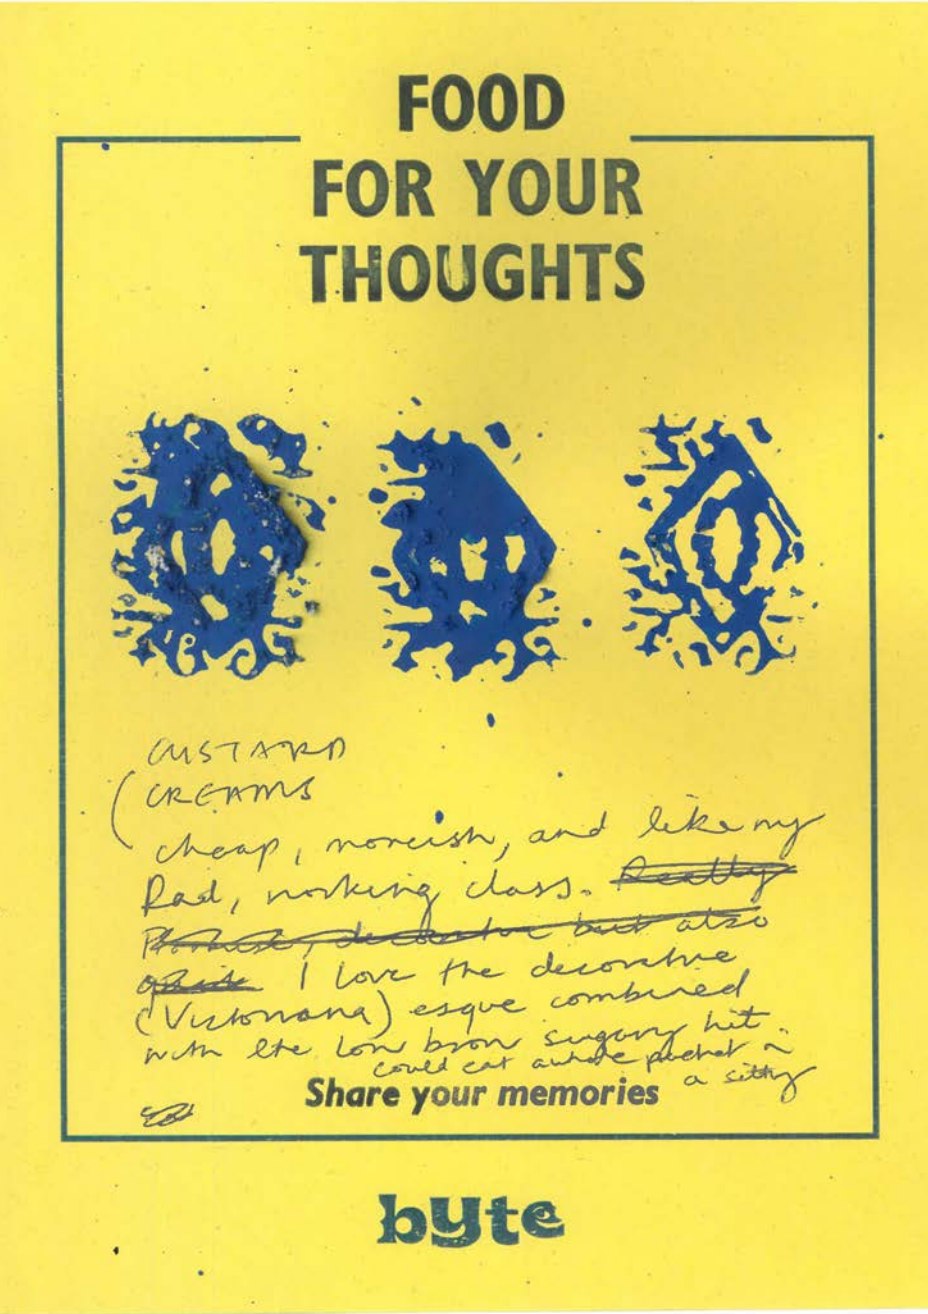 FOOD
FOR YOUR
THOUGHTS
CUSTARD
CREAMS
cheap, moreish, and like my
Dad, working class. Really
but also
I love the decorative
(Victoriana) esque combined
with the low brow sugary hit.
could eat a whole packet in
a sitting
Share your memories
byte